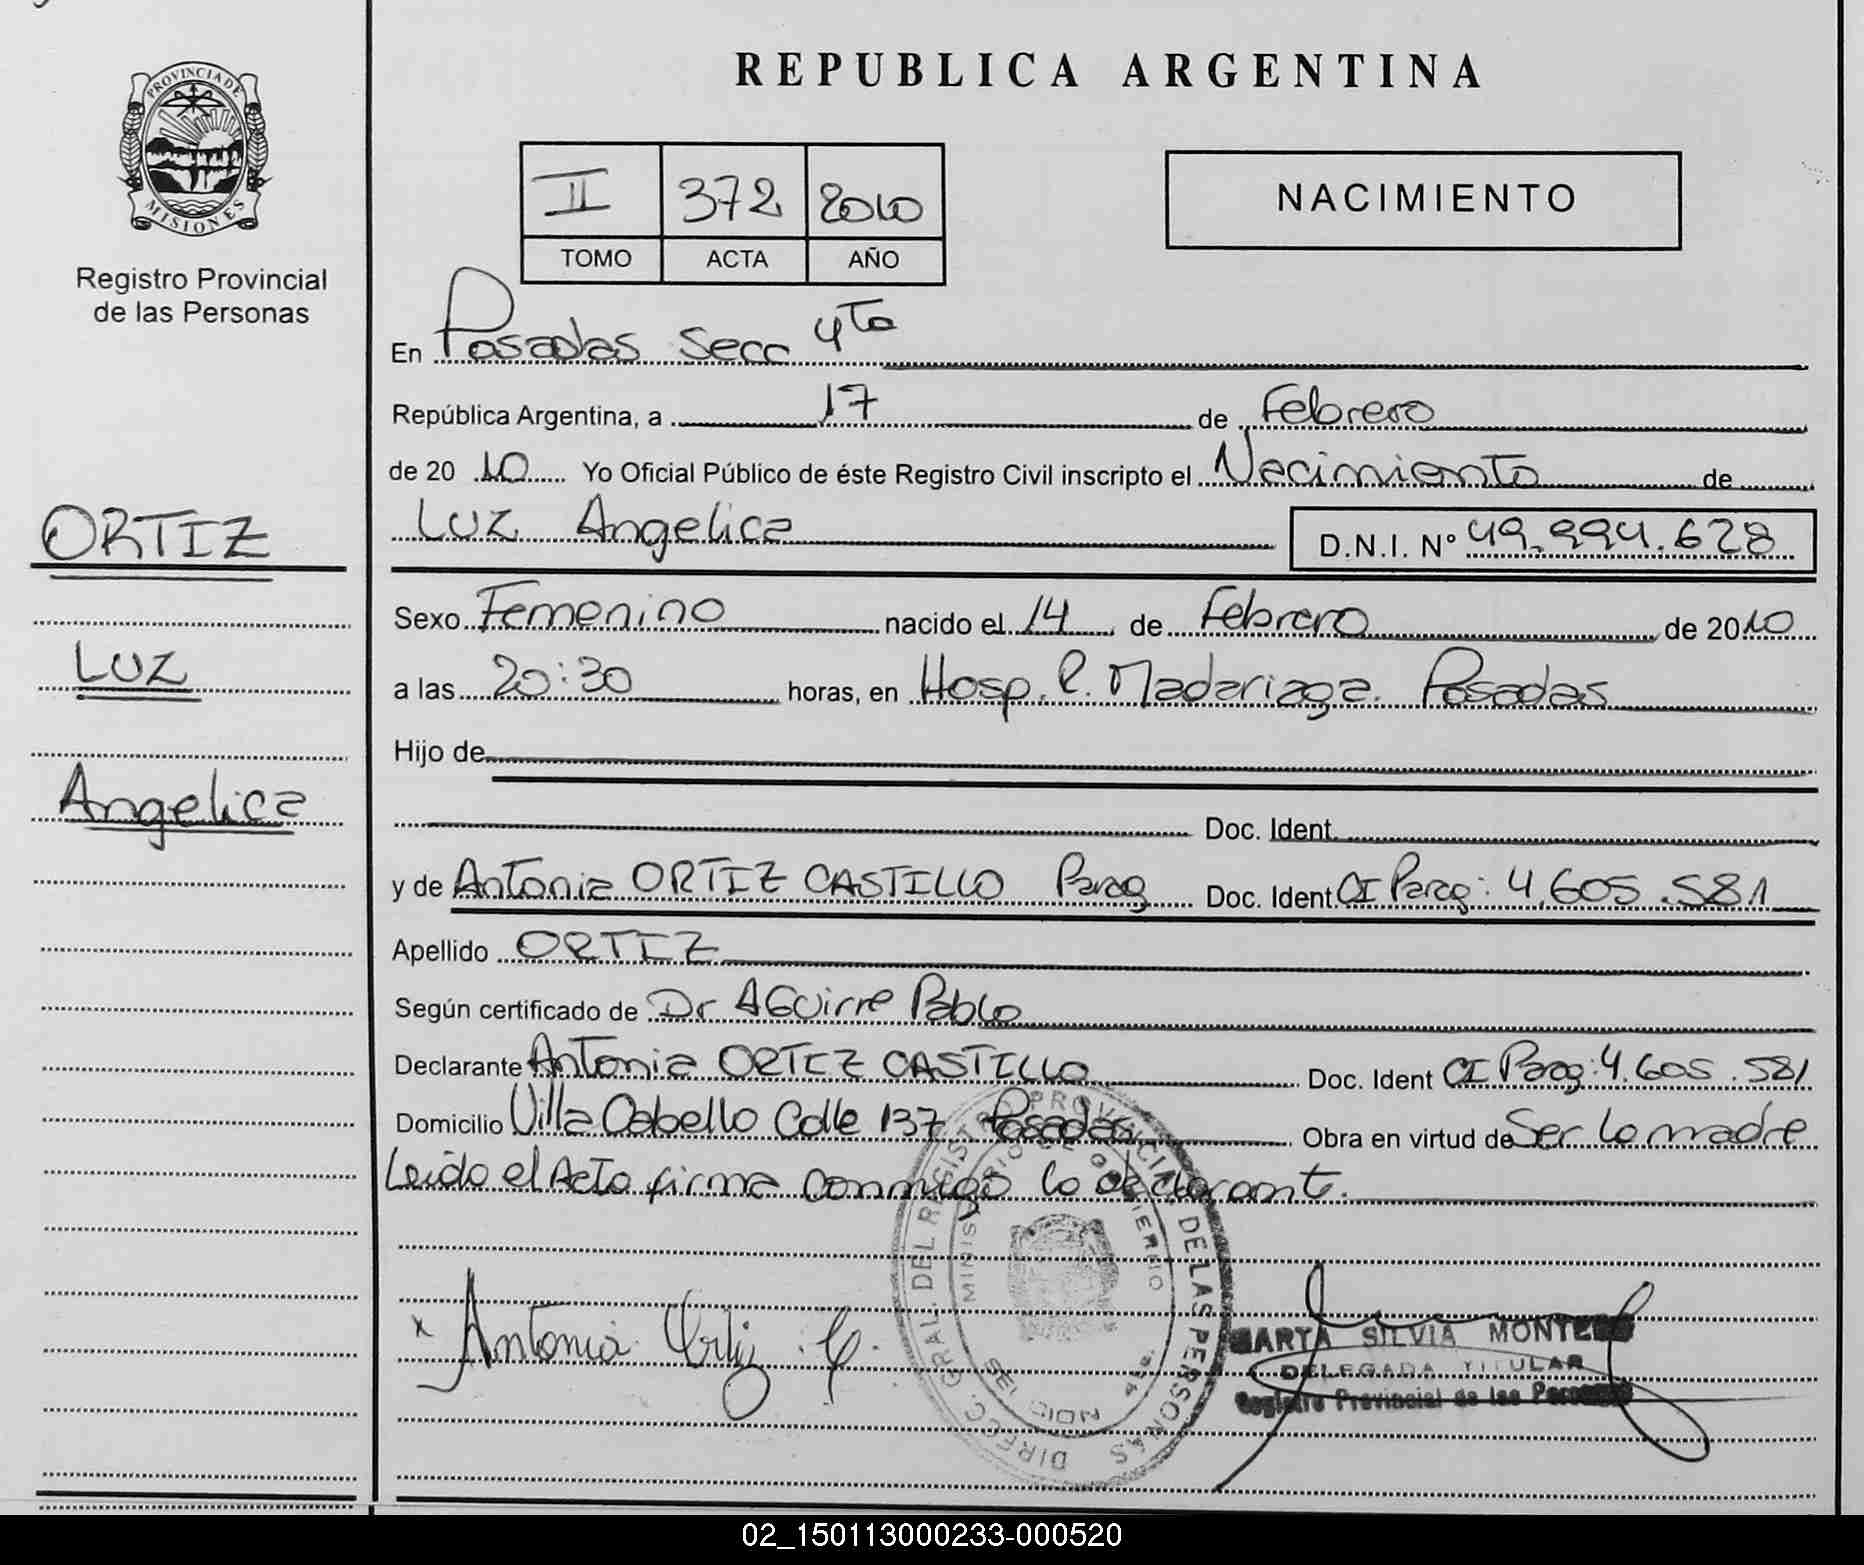 REPUBLICA ARGENTINA
PROVINCIA DE
MISIONES
Registro Provincial
de las Personas
II 372 2010
TOMO ACTA AÑO
NACIMIENTO
ORTIZ
LUZ
Angelica
En Posadas Secc 4ta
República Argentina, a 17 de Febrero
de 2010 Yo Oficial Público de éste Registro Civil inscripto el Nacimiento de
LUZ Angelica D.N.I. Nº 49.994.628
Sexo Femenino nacido el 14 de Febrero de 2010
a las 20:30 horas, en Hosp. R. Madariaga. Posadas
Hijo de
Doc. Ident.
y de Antonia ORTIZ CASTILLO Parag Doc. Ident. CI Parag: 4.605.581
Apellido ORTIZ
Según certificado de Dr AGUirre Pablo
Declarante Antonia ORTIZ CASTILLO Doc. Ident CI Parag: 4.605.581
Domicilio Villa Cabello Calle 137 Posadas Obra en virtud de Ser la madre
Leido el Acta firma conmigo la declarante.
x Antonia Ortiz C.
DIREC. GRAL. DEL REGISTRO PROVINCIAL DE LAS PERSONAS
MINISTERIO DE GOBIERNO
MARTA SILVIA MONTERO
DELEGADA TITULAR
Registro Provincial de las Personas
02_150113000233-000520